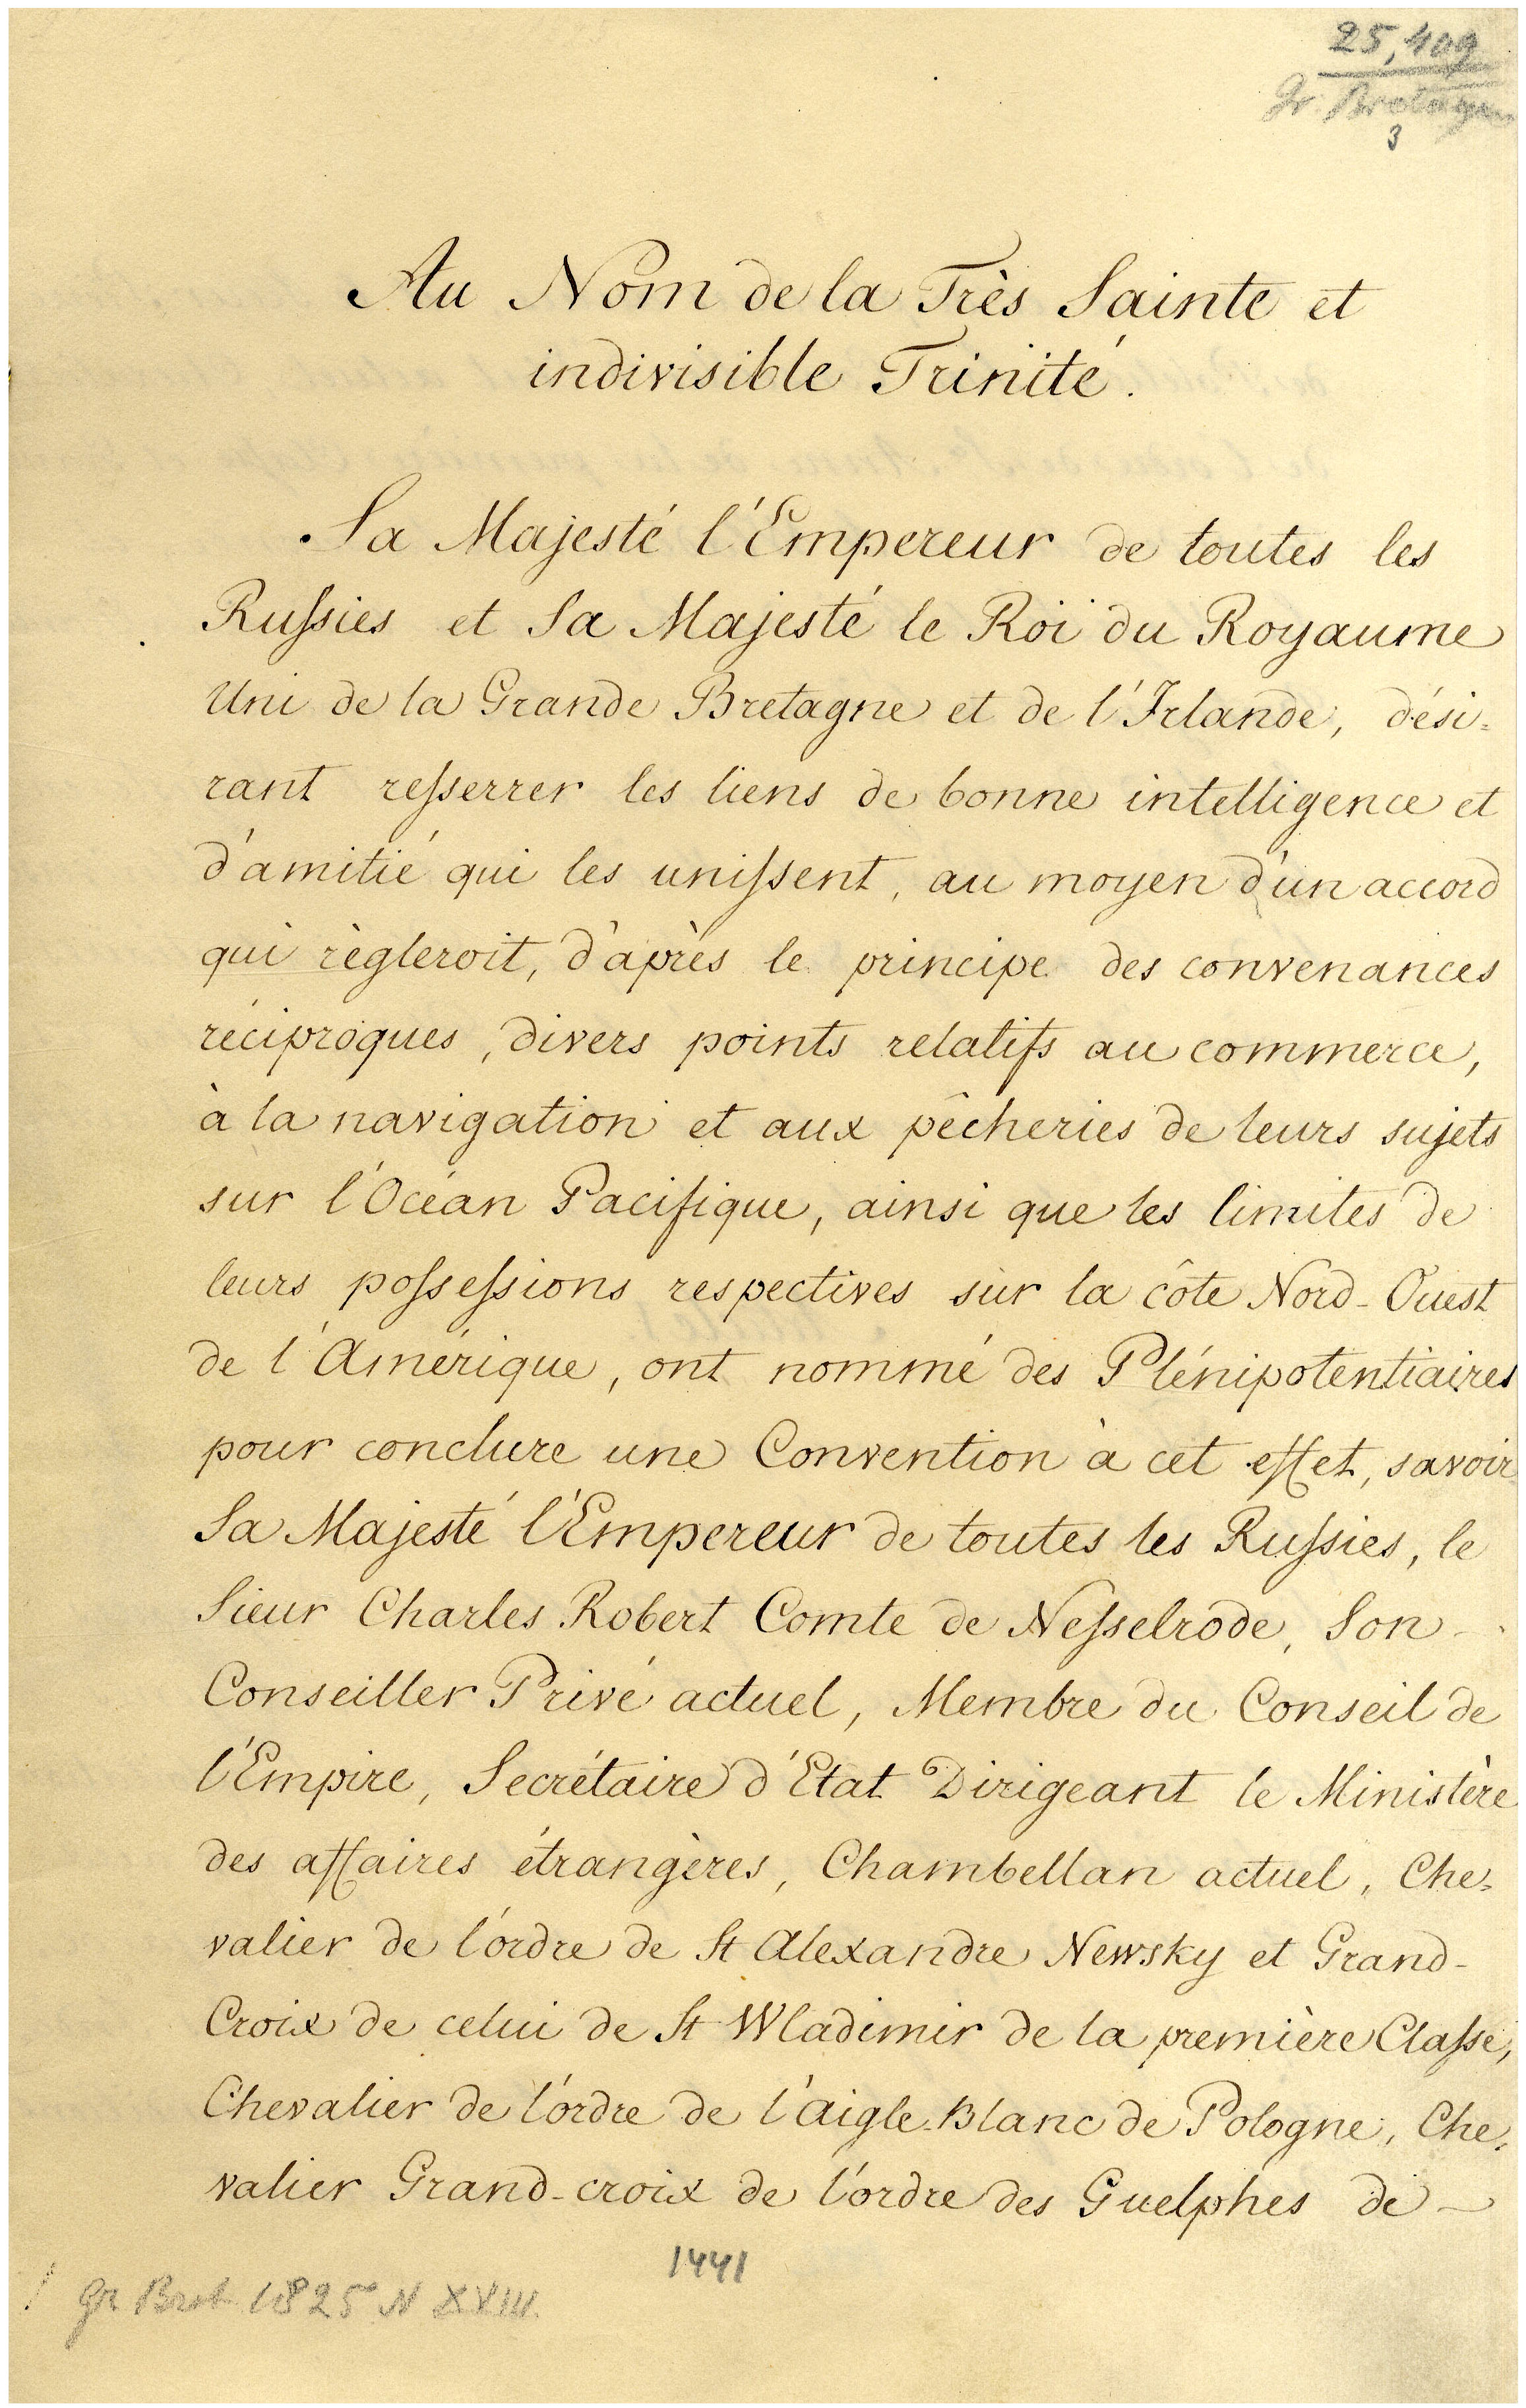 25,409
Gr. Bretagn
3
Au Nom de la Très Sainte et
indivisible Trinité.
Sa Majesté l'Empereur de toutes les
Russies et Sa Majesté le Roi du Royaume
Uni de la Grande Bretagne et de l'Irlande, dési-
rant resserrer les liens de bonne intelligence et
d'amitié qui les unissent, au moyen d'un accord
qui règleroit, d'après le principe des convenances
réciproques, divers points relatifs au commerce,
à la navigation et aux pêcheries de leurs sujets
sur l'Océan Pacifique, ainsi que les limites de
leurs possessions respectives sur la côte Nord-Ouest
de l'Amérique, ont nommé des Plénipotentiaires
pour conclure une Convention à cet effet, savoir
Sa Majesté l'Empereur de toutes les Russies, le
Sieur Charles Robert Comte de Nesselrode, Son
Conseiller Privé actuel, Membre du Conseil de
l'Empire, Secrétaire d'Etat Dirigeant le Ministère
des affaires étrangères, Chambellan actuel, Che-
valier de l'ordre de St Alexandre Newsky et Grand-
Croix de celui de St Wladimir de la première Classe,
Chevalier de l'ordre de l'aigle-Blanc de Pologne, Che-
valier Grand-croix de l'ordre des Guelphes de
1441
Gr Bret 1825 N XVIII.